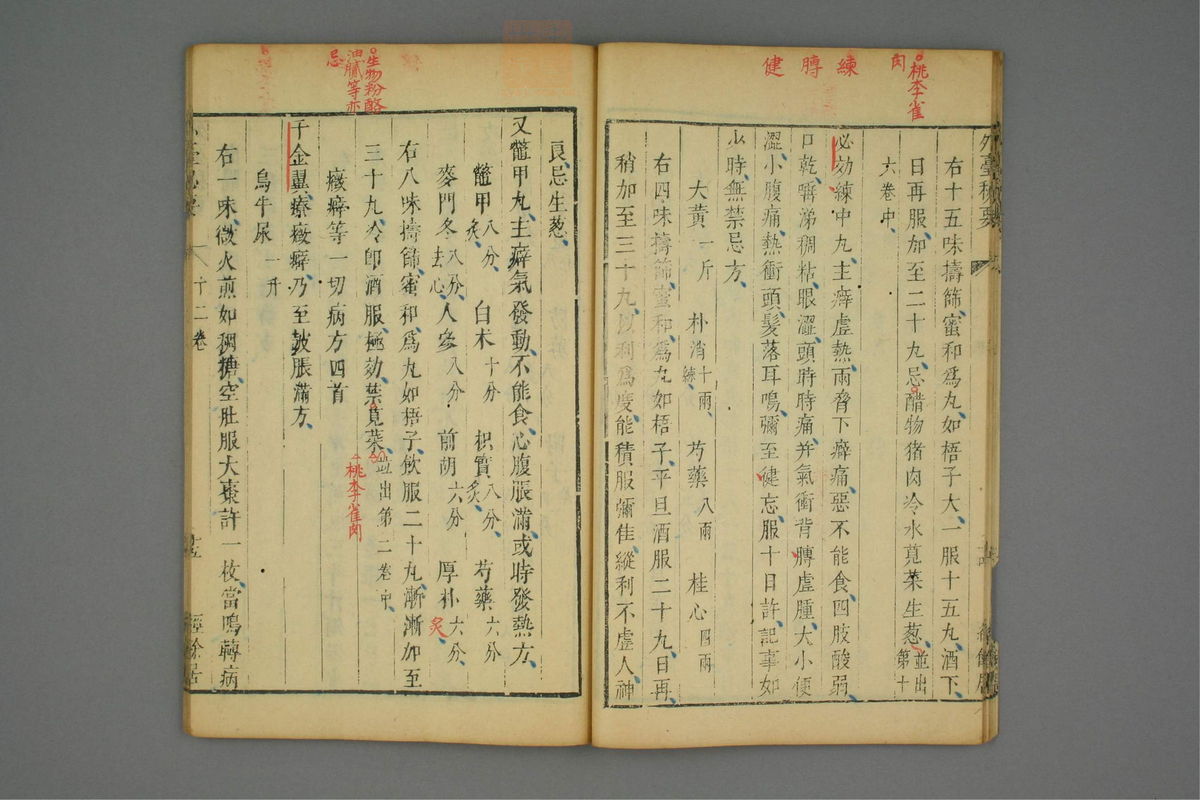 桃李雀
肉
練
膞
健
外臺秘要
右十五味擣篩蜜和爲丸如梧子大一服十五丸酒下
日再服加至二十丸忌醋物猪肉冷水莧菜生葱並出第十
六卷中
必効練中丸主癖虛熱兩脅下癖痛惡不能食四肢酸弱
口乾嚼涕稠粘眼澀頭時時痛并氣衝背膞虛腫大小便
澀小腹痛熱衝頭髮落耳鳴彌至健忘服十日許記事如
少時無禁忌方
大黃一斤 朴消十兩練 芍藥八兩 桂心四兩
右四味擣篩蜜和爲丸如梧子平旦酒服二十丸日再
稍加至三十丸以利爲度能積服彌佳縱利不虛人神
生物粉酪
油膩等亦
忌
良忌生葱
又鼈甲丸主癖氣發動不能食心腹脹滿或時發熱方
鼈甲八分炙 白朮十分 枳實八分炙 芍藥六分
麥門冬八分去心 人參八分 前胡六分 厚朴六分炙
右八味擣篩蜜和爲丸如梧子飲服二十丸漸漸加至
三十丸冷即酒服極効禁莧菜並出第二卷中
桃李雀肉
癥癖等一切病方四首
千金翼療癥癖乃至鼓脹滿方
烏牛尿一升
右一味微火煎如稠糖空肚服大棗許一枚當鳴轉病
十二卷
經餘居